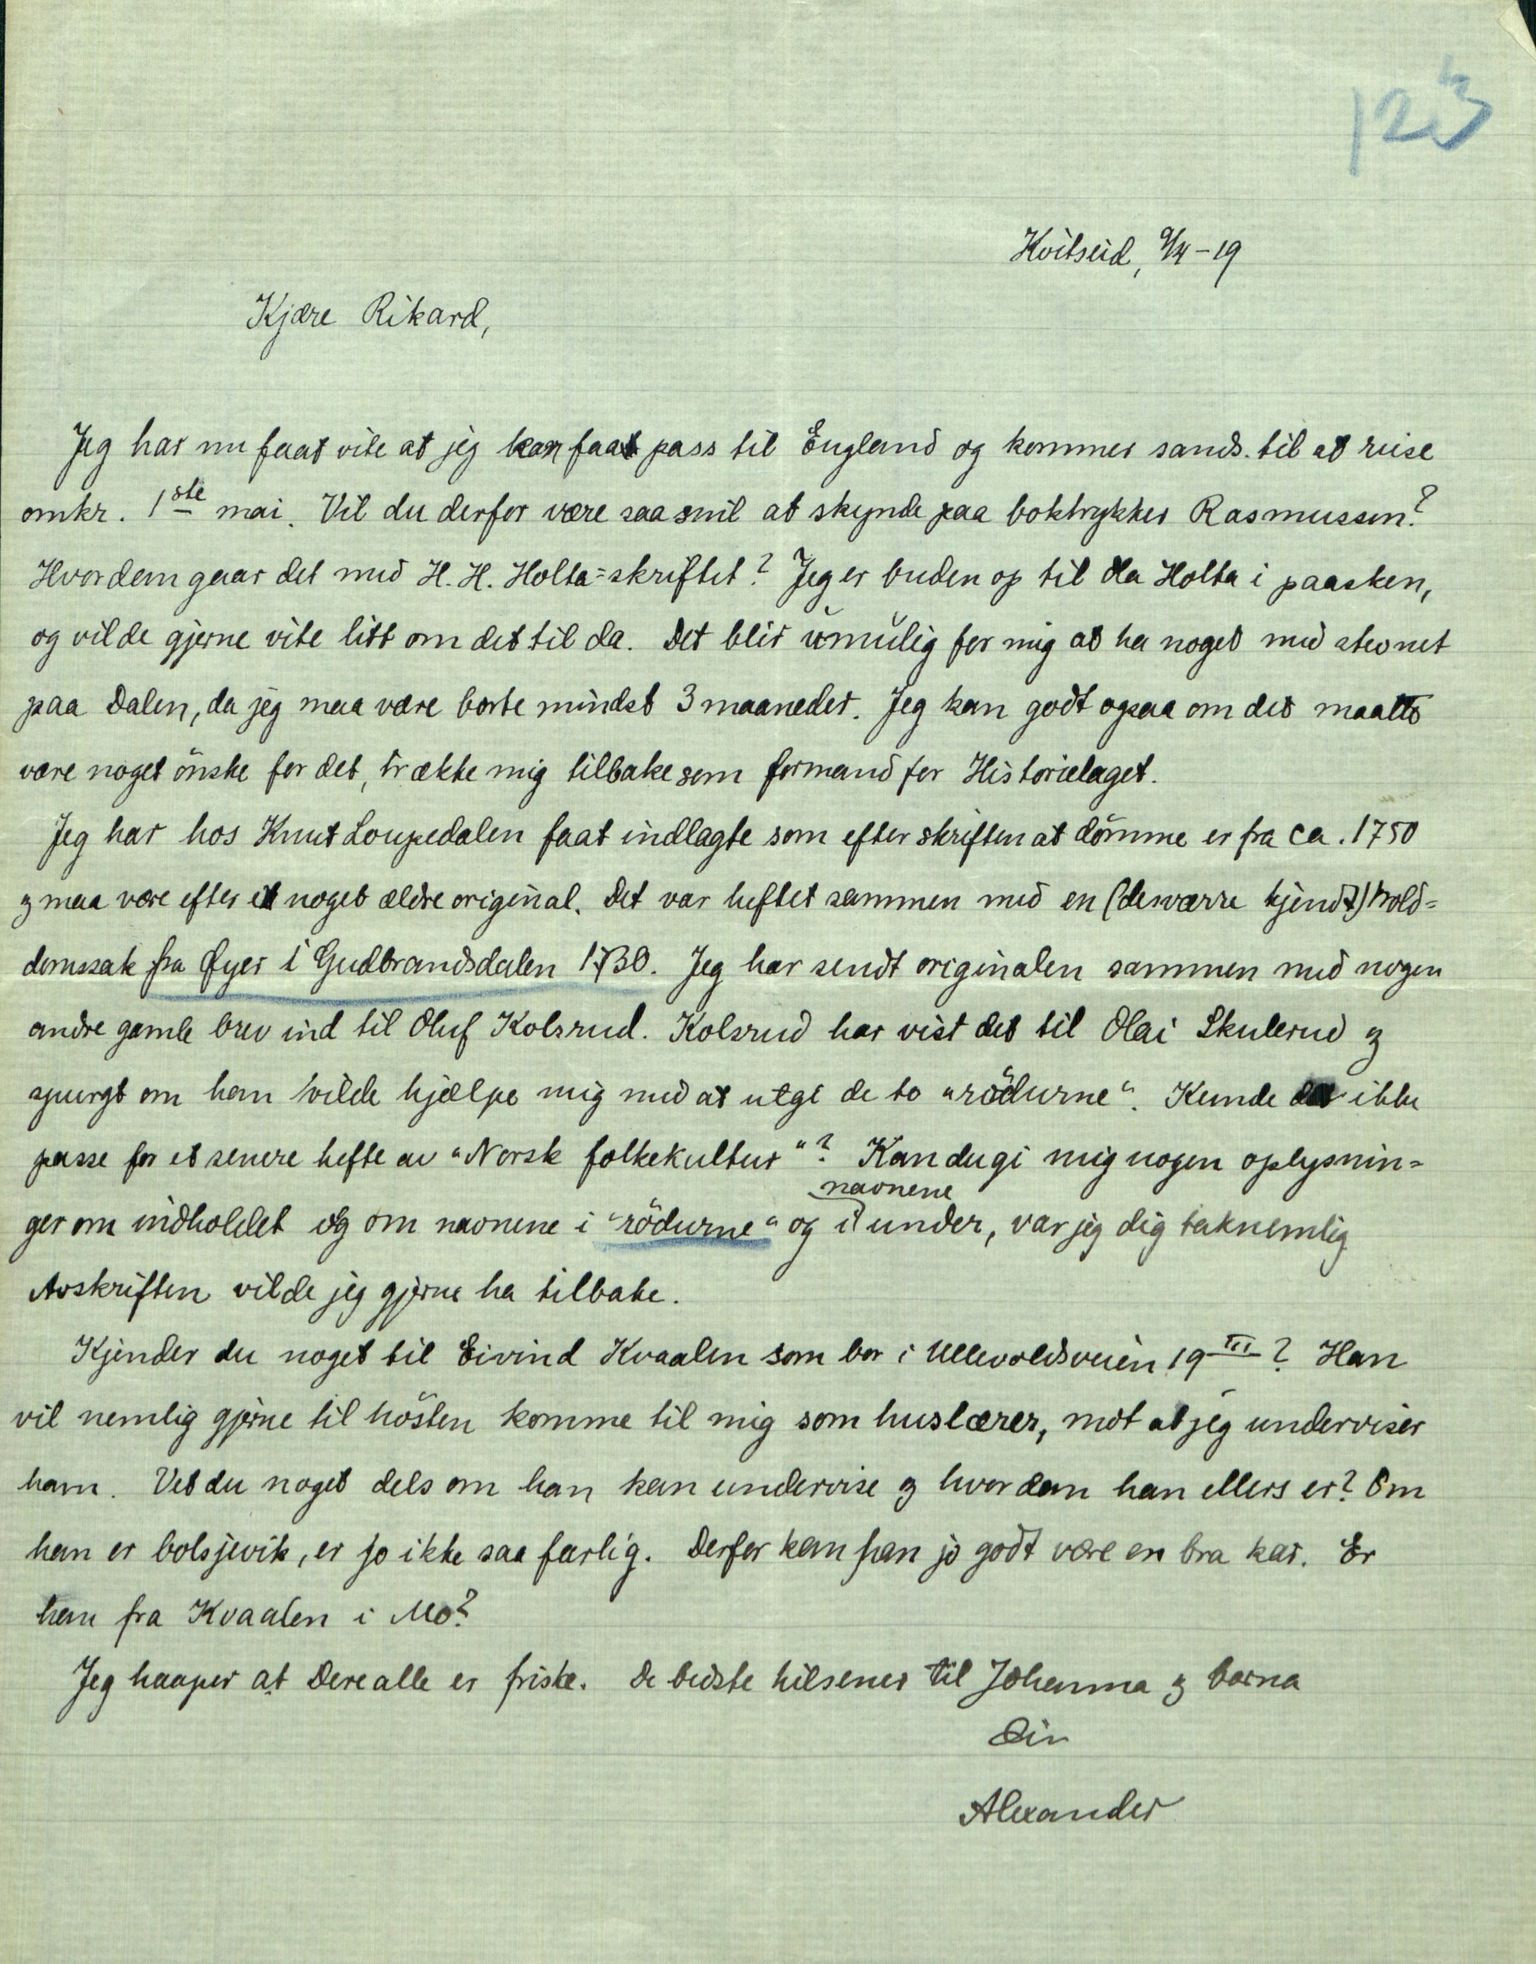 123
Kvitseid, 9/4-19
Kjære Rikard,
Jeg har nu faat vite at jeg kan faat pass til England og kommer sands. til at reise
omkr. 1ste mai. Vil du derfor være saa snil at skynde paa boktrykker Rasmussen?
Hvordem gaar det med H. H. Holta=skriftet? Jeg er buden op til Holta i paasken,
og vilde gjerne vite litt om det til da. Det blir umulig for mig at ha noget med stevnet
paa Dalen, da jeg maa være borte mindst 3 maaneder. Jeg kan godt ogsaa om det maatte
være noget önske for det, trække mig tilbake som formand for Historielaget.
Jeg har hos Knut Loupedalen faat indlagte som efter skriften at dömme er fra ca. 1750
og maa være efter et noget ældre original. Det var heftet sammen med en (desværre kjendt) trold=
domssak fra Øyer i Gudbrandsdalen 1730. Jeg har sendt originalen sammen med nogen
andre gamle brev ind til Oluf Kolsrud. Kolsrud har vist det til Olai Skulerud og
spurgt om han vilde hjælpe mig med at utgi de to "rödurne". Kunde det ikke
passe for et senere hefte av "Norsk folkekultur"? Kan du gi mig nogen oplysnin=
navnene
ger om indholdet og om navnene i "rödurne" og i under, var jeg dig taknemlig
Avskriften vilde jeg gjerne ha tilbake.
Kjender du noget til Eivind Kvaalen som bor i Ullevoldsveien 19 III? Han
vil nemlig gjerne til hösten komme til mig som huslærer, mot at jeg underviser
ham. Vet du noget dels om han kan undervise og hvordan han ellers er? Om
han er bolsjevik, er jo ikke saa farlig. Derfor kan han jo godt være en bra kar. Er
han fra Kvaalen i Mo?
Jeg haaper at Dere alle er friske. De bedste hilsener til Johanna og borna
Din
Alexander